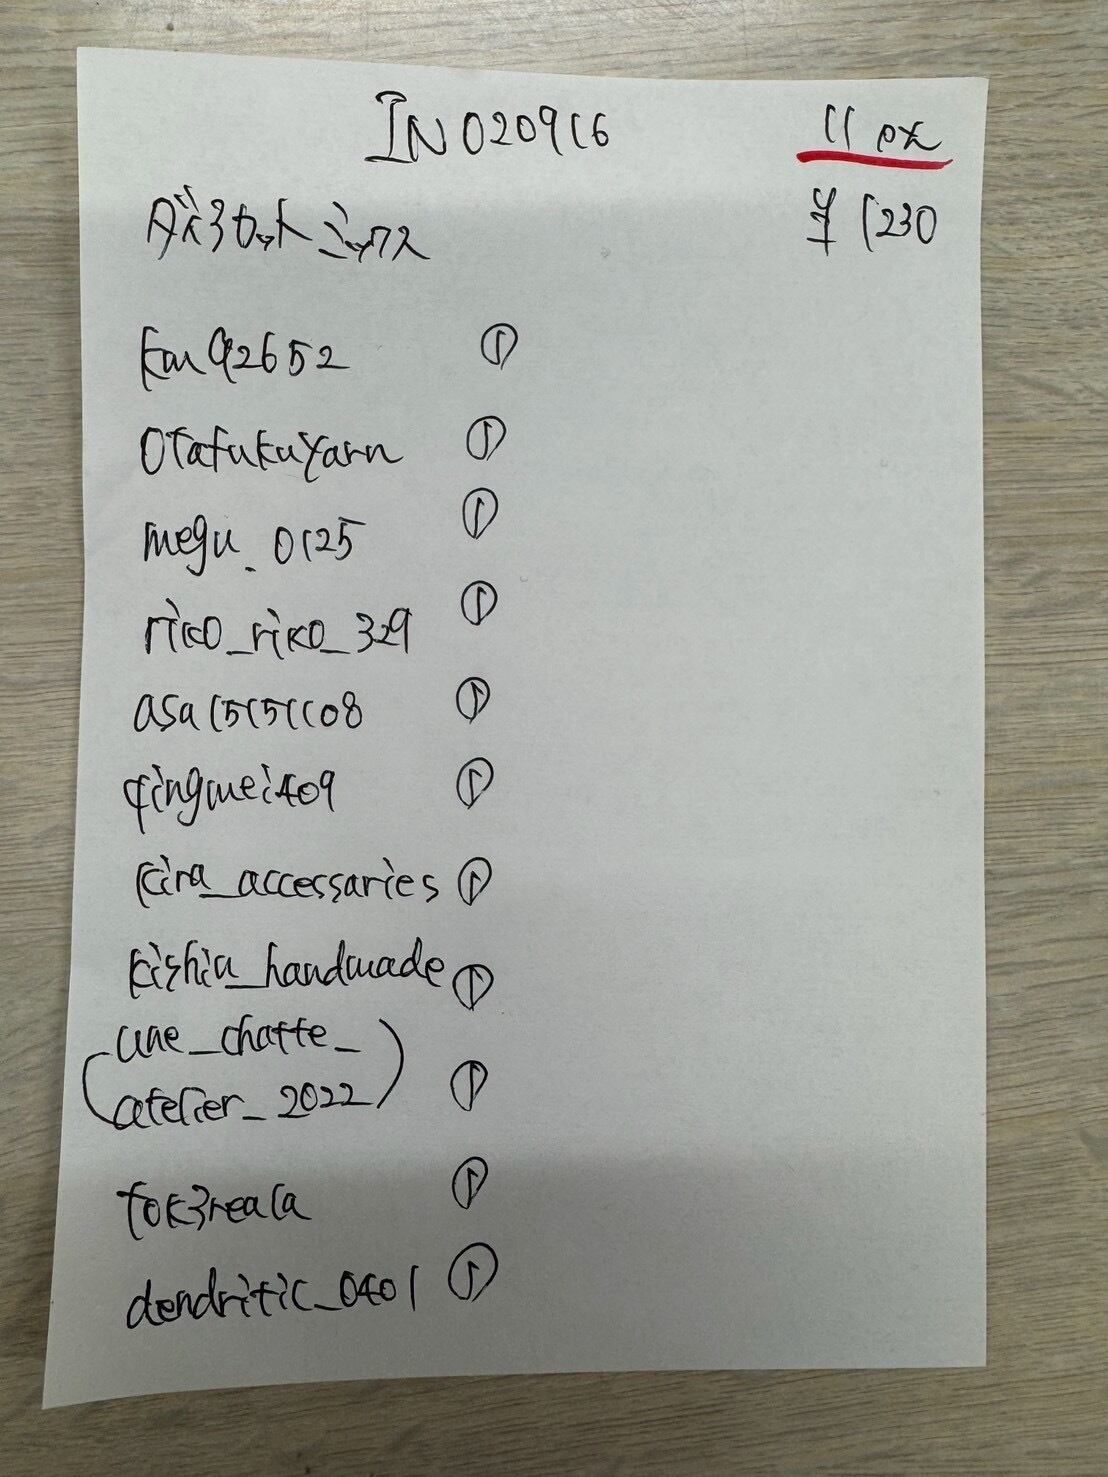 IN020916
11 px
¥ 1230
カット ミックス
kmq2652 ①
otafukuyarn ①
megu_0125 ①
riko_riko_329 ①
asa15151108 ①
qingmei409 ①
kira_accessaries ①
kishiu_handmade ①
(une_chatte_
atelier_2022) ①
tok3reala ①
dendritic_0401 ①